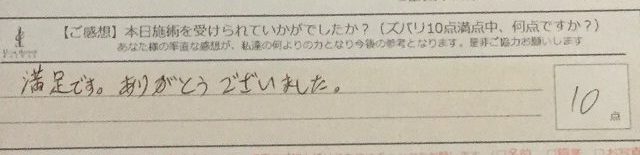 【ご感想】本日施術を受けられていかがでしたか?(ズバリ10点満点中、何点ですか?)
あなた様の率直な感想が、私達の何よりの力となり今後の参考となります。是非ご協力お願いします
満足です。ありがとうございました。
10
点